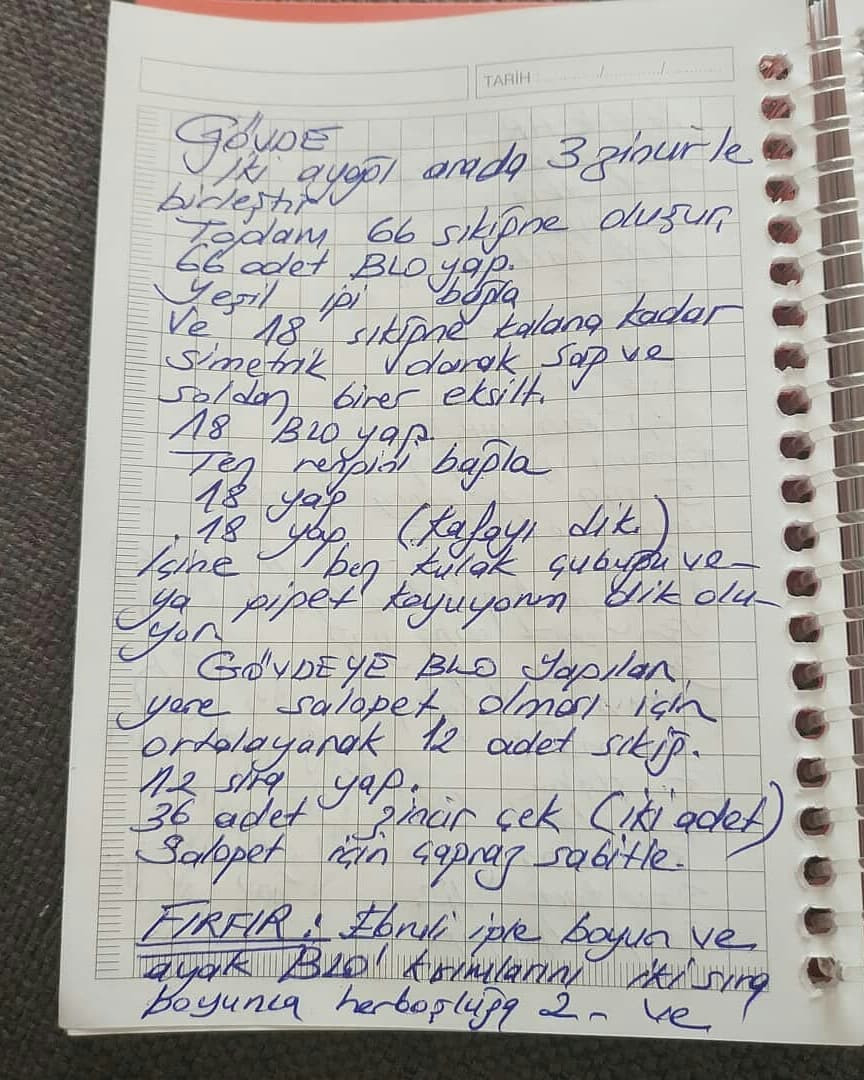 TARİH ......./......./.......
GÖVDE
İki ayağı arada 3 zincirle
birleştir
Toplam 66 sıkiğne oluşur,
66 adet BLO yap.
Yeşil ipi bağla
Ve 18 sıkiğne kalana kadar
simetrik olarak sağ ve
soldan birer eksilt.
18 BLO yap.
Ten rengini bağla
18 yap
18 yap (Kafayı dik.)
İçine ben kulak çubuğu ve-
ya pipet koyuyorum dik olu-
yor
GÖVDEYE BLO Yapılan,
yere salopet olması için
ortalayarak 12 adet sıkiğ.
12 sıra yap.
36 adet zincir çek (iki adet)
Salopet için çapraz sabitle.
FIRFIR: Ebruli iple boyun ve
ayak BLO' kırımlarını iki sıra
boyunca her boşluğa 2- ve